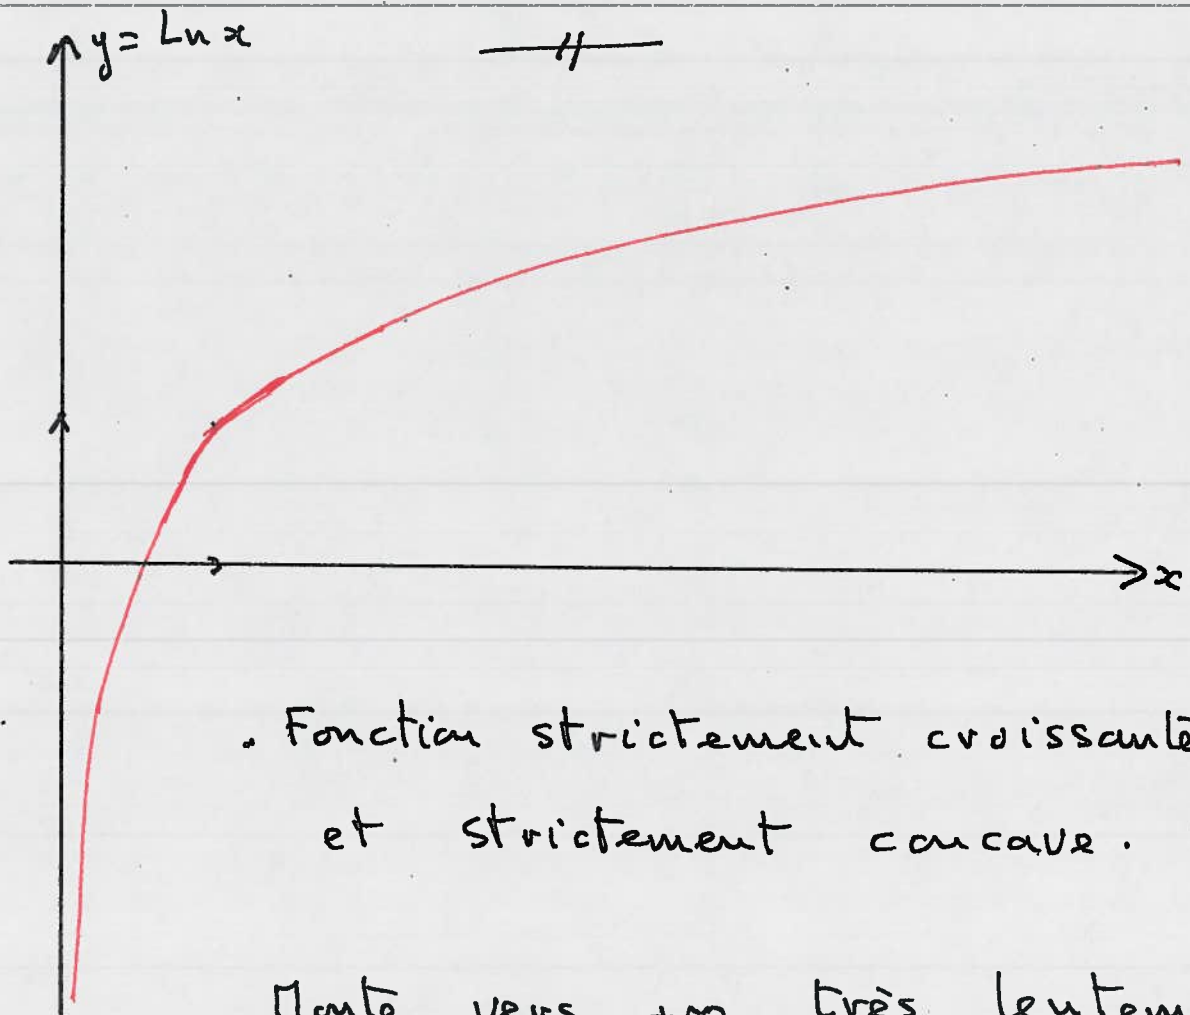 y = Ln x
x
. Fonction strictement croissante
et strictement concave.
Monte vers +∞ très lentem